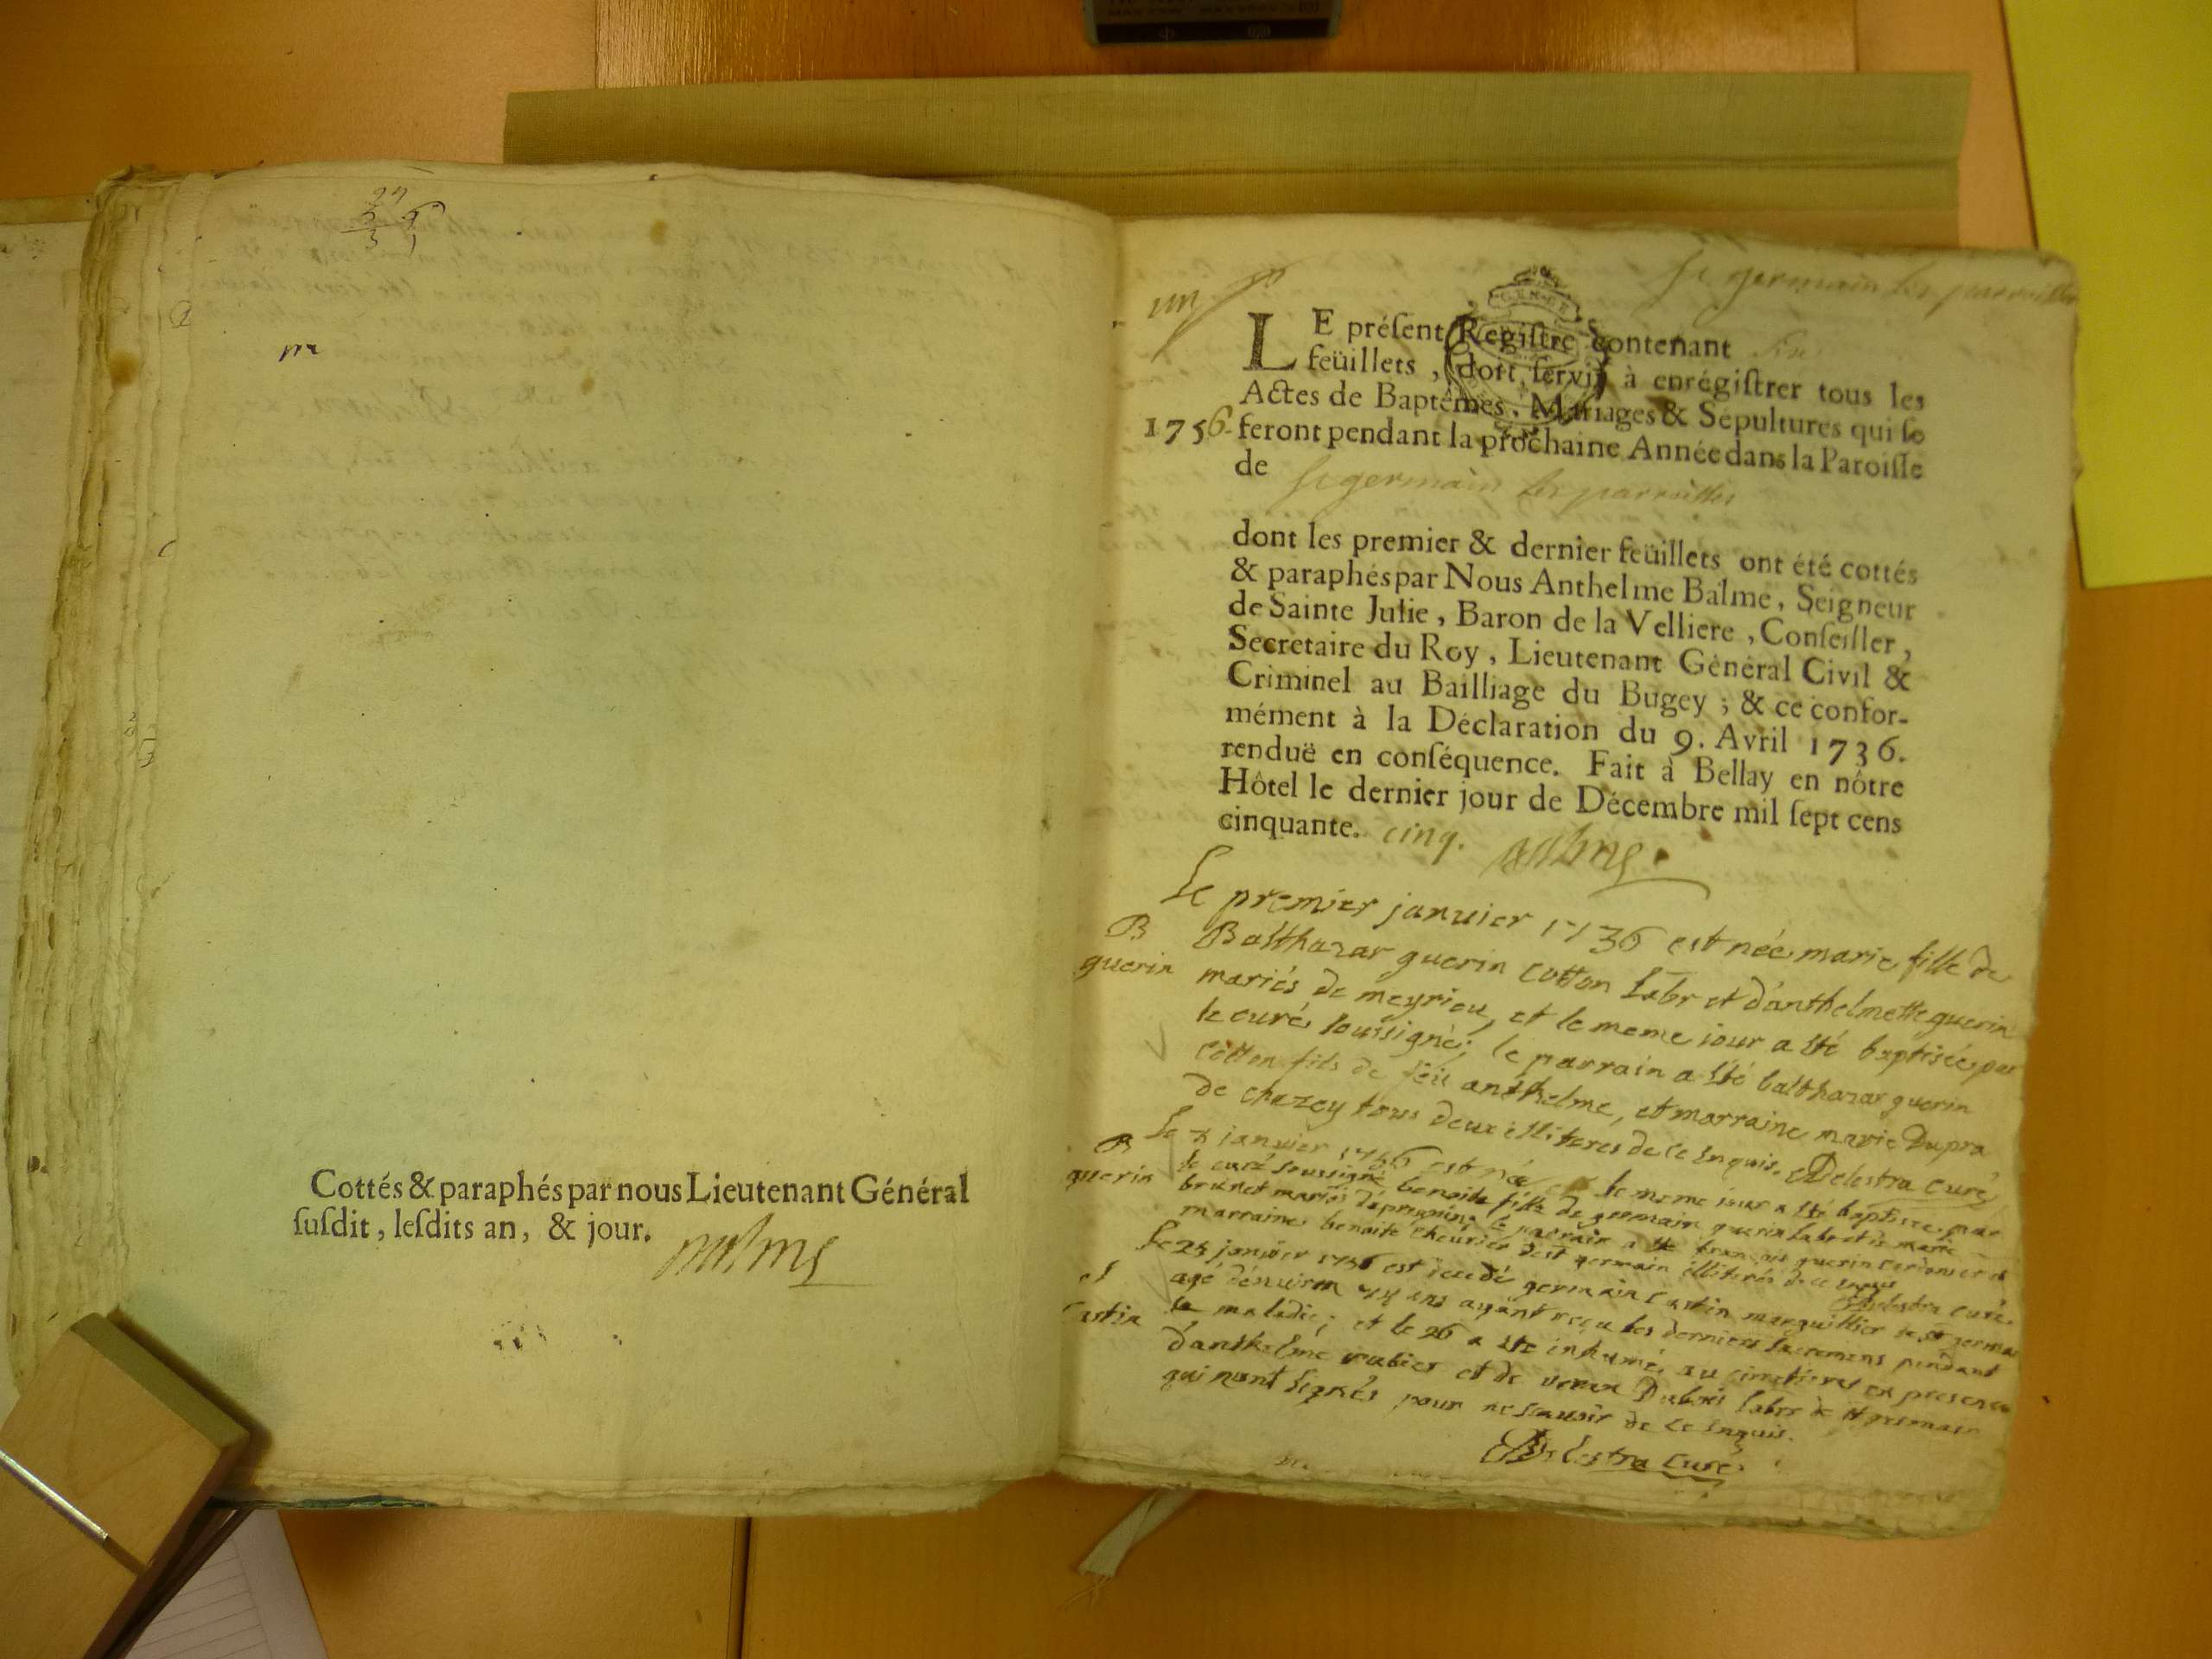 Cottés & paraphés par nous Lieutenant Général
ſuſdit, leſdits an, & jour.
un
St germain les parroisses
LE préſent Regiſtre contenant
feüillets, doit ſervir à enrégiſtrer tous les
Actes de Baptêmes, Mariages & Sépultures qui ſe
1756 feront pendant la prochaine Année dans la Paroiſſe
de St germain les parroisses
dont les premier & dernier feüillets ont été cottés
& paraphés par Nous Anthelme Balme, Seigneur
de Sainte Julie, Baron de la Velliere, Conſeiller,
Secretaire du Roy, Lieutenant Général Civil &
Criminel au Bailliage du Bugey; & ce confor-
mément à la Déclaration du 9. Avril 1736.
renduë en conſéquence. Fait à Bellay en nôtre
Hôtel le dernier jour de Décembre mil ſept cens
cinquante. cinq. Balme
Le premier janvier 1756 est née marie fille de
B Balthazar guerin cotton labr et d'anthelmette guerin
guerin mariés de meyrieu, et le meme jour a été baptisée par
le curé soussigné; le parrain a été balthazar guerin
cotton fils de feu anthelme, et marraine marie Dupra
de chazey tous deux illiteres de ce enquis. Delestra curé
B Le janvier 1756 est née et le meme jour a été baptisée par
guerin le curé soussigné benoite fille de germain guerin labr et de marie
brunet mariés le parrain a été françois guerin et
marraine benoite de st germain illiterés de ce enquis
Delestra curé
S Le 25 janvier 1756 est decedé germain castin marguillier de st germain
castin agé d'environ ans ayant reçu les derniers sacremens pendant
sa maladie; et le 26 a été inhumé au cimetiere en presence
d'anthelme et de Dubois labrs de st germain
qui n'ont signés pour ne scavoir de ce enquis.
Delestra curé